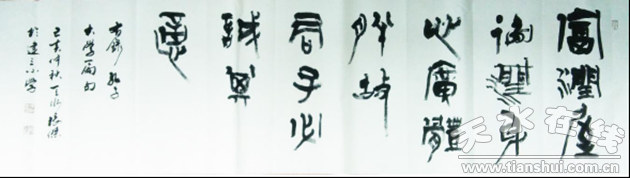 富潤屋
德潤身
心廣體
胖故
君子必
誠其
意
右錄孔子
大學篇句
仲秋天水
小學
天水在线
www.tianshui.com.cn